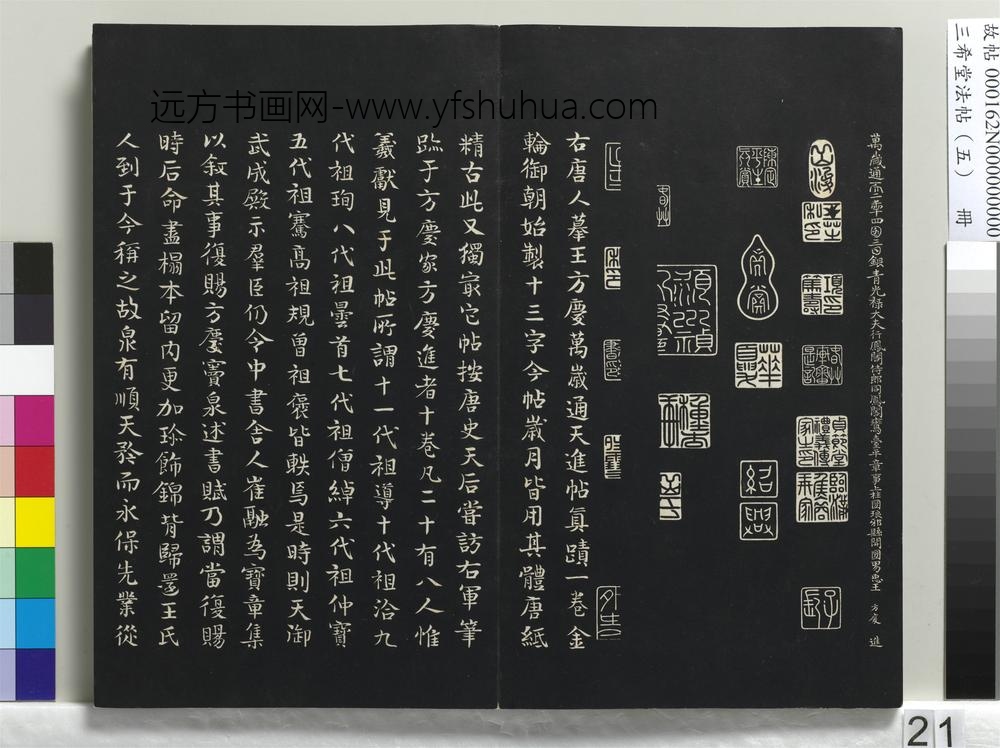 远方书画网-www.yfshuhua.com
故帖000162N000000000
三希堂法帖（五） 冊
萬歲通天二年四月三日銀青光祿大夫行鳳閣侍郎同鳳閣鸞臺平章事上柱國琅邪縣開國男臣王方慶進
紹興
右唐人摹王方慶萬歲通天進帖真蹟一卷金
輪御朝始製十三字今帖歲月皆用其體唐紙
精古此又獨最它帖按唐史天后嘗訪右軍筆
跡于方慶家方慶進者十卷凡二十有八人惟
羲獻見于此帖所謂十一代祖導十代祖洽九
代祖珣八代祖曇首七代祖僧綽六代祖仲寶
五代祖騫高祖規曾祖褒皆軼焉是時則天御
武成殿示羣臣仍令中書舍人崔融為寶章集
以敘其事復賜方慶竇泉述書賦乃謂當復賜
時后命盡榻本留內更加珍飾錦背歸還王氏
人到于今稱之故泉有順天矜而永保先業從
21